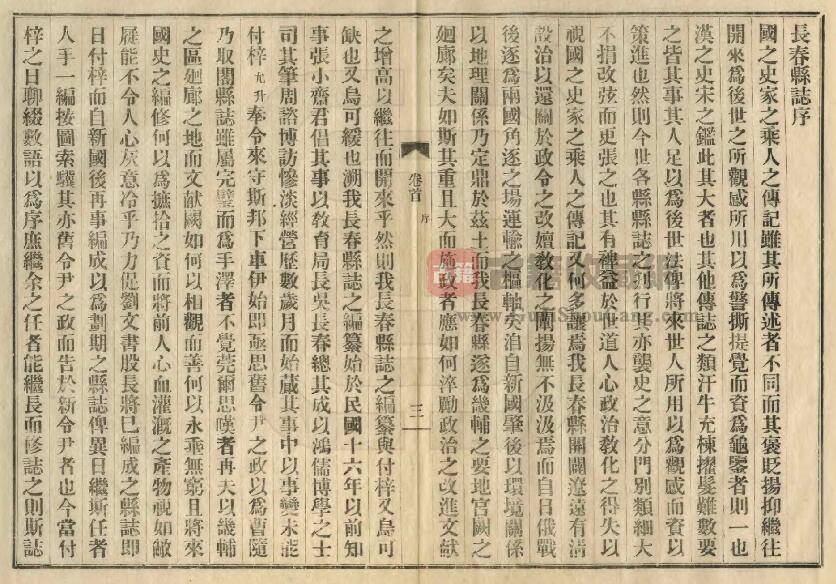 長春縣誌序
國之史家之乘人之傳記雖其所傳述者不同而其褒貶揚抑繼往
開來爲後世之所觀感所用以爲警撕提覺而資爲龜鑒者則一也
漢之史宋之鑑此其大者也其他傳誌之類汗牛充棟擢髮難數要
之皆其事其人足以爲後世法俾將來世人所用以爲觀感而資以
策進也然則今世各縣縣誌之刊行其亦襲史之意分門別類細大
不捐改弦而更張之也其有裨益於世道人心政治敎化之得失以
視國之史家之乘人之傳記又何多讓焉我長春縣開闢遼遠有清
設治以還關於政令之改嬗敎化之闡揚無不汲汲焉而自日俄戰
後逐爲兩國角逐之場運輸之樞軸矣洎自新國肇後以環境關係
以地理關係乃定鼎於茲土而我長春縣遂爲畿輔之要地官闕之
廻廊矣夫如斯其重且大而施政者應如何淬勵政治之改進文獻
之增高以繼往而開來乎然則我長春縣誌之編纂與付梓又烏可
缺也又烏可緩也溯我長春縣誌之編纂始於民國十六年以前知
事張小齋君倡其事以敎育局長吳長春總其成以鴻儒博學之士
司其筆周諮博訪慘淡經營歷數歲月而始蕆其事中以事變未能
付梓允升奉令來守斯邦下車伊始即亟思舊令尹之政以爲曹隨
乃取閣縣誌雖屬完璧而爲手澤者不覺莞爾思嘆者再夫以畿輔
之區廻廊之地而文献闕如何以相觀而善何以永乘無窮且將來
國史之編修何以爲摭拾之資而將前人心血灌溉之產物視如敝
屣能不令人心灰意冷乎乃力促劉文書股長將已編成之縣誌即
日付梓而自新國後再事編成以爲劃期之縣誌俾異日繼斯任者
人手一編按圖索驥其亦舊令尹之政而告於新令尹者也今當付
梓之日聊綴數語以爲序庶繼余之任者能繼長而修誌之則斯誌
卷首
序
三
古籍
古籍收藏網
www.gujishoucang.com